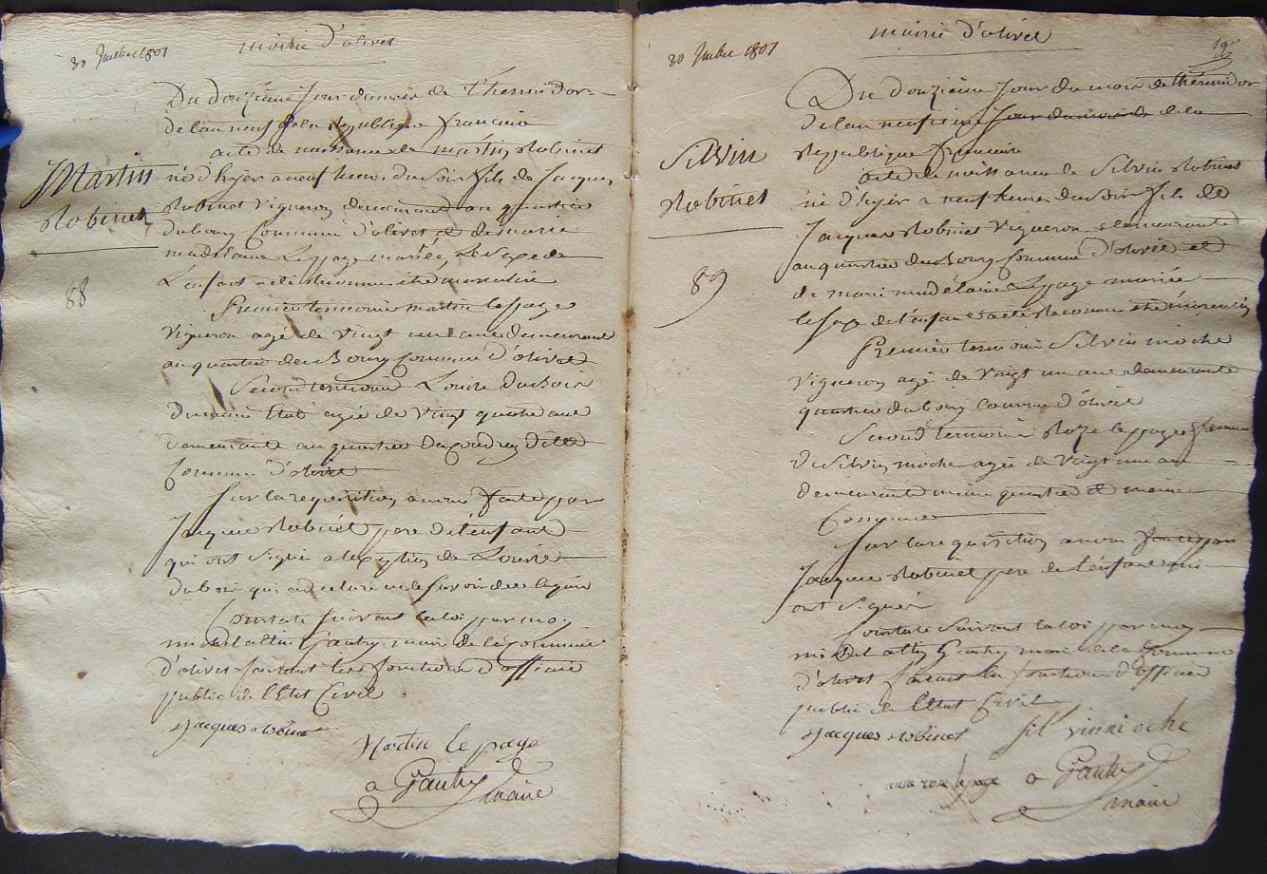 30 Juillet 1801
mairie d'olivet
Du douzième Jour du mois de thermidor
de l'an neuf de la république francaise
acte de naissance de martin Robinet
Martin
Robinet
88
né d'hyer a neuf heures du soir fils de Jacques
Robinet Vigneron demeurant au quartier
du bourg Commune d'olivet et de marie
madelaine Lepage mariés le sexe de
L'enfant a été reconnu être masculin
Premier temoin martin lepage
Vigneron agé de Vingt un ans demeurant
au quartier du Bourg Commune d'olivet
Second temoin Louise Dubois
agée de Vingt quatre ans
demeurante au quartier du dite
Commune d'olivet
Sur la requisition a nous faite par
Jacques Robinet pere de l'enfant
qui ont signé a l'exeption de Louise
Dubois qui a declaré ne le savoir de ce requise
Constaté suivant la loi par moy
Gautry maire de la Commune
d'olivet faisant les fonctions d'officier
public de l'Etat Civil
Jacques robinet
Martin le page
a Gautry
maire
30 Juillet 1801
mairie d'olivet
Du douzième Jour du mois de thermidor
de l'an neufieme de la
Republique francaise
acte de naissance de Silvin Robinet
Silvin
Robinet
89
né d'hyer a neuf heures du soir fils de
Jacques Robinet Vigneron demeurant
au quartier du Bourg Commune d'olivet et
de marie madelaine Lepage mariée
le sexe de l'enfant a été reconnu etre masculin
Premier temoin Silvin mioche
Vigneron agé de Vingt un ans demeurante
quartier du bourg Commune d'olivet
Second temoin Roze le page femme
de Silvin mioche agée de Vingt un an
demeurante meme quartier et meme
Commune
Sur la requisition a nous faite par
Jacques Robinet pere de l'enfant qui
ont signés
Constaté suivant la loi par moy
Gautry maire de la Commune
d'olivet faisant les fonctions d'officier
public de l'Etat Civil
Jacques robinet
sil vin mi oche
a Gautry
maire